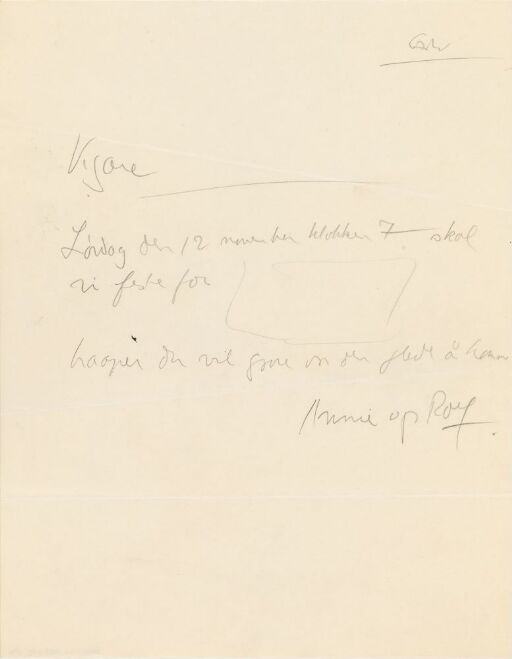 Lørdag den 12 november klokken 7 skal
vi feste for
haaper du vil gjøre oss den glede å komme
Annie og Rolf